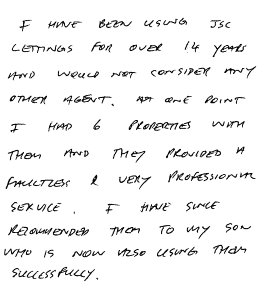 I HAVE BEEN USING JSC
LETTINGS FOR OVER 14 YEARS
AND WOULD NOT CONSIDER ANY
OTHER AGENT. AT ONE POINT
I HAD 6 PROPERTIES WITH
THEM AND THEY PROVIDED A
FAULTLESS & VERY PROFESSIONAL
SERVICE. I HAVE SINCE
RECOMMENDED THEM TO MY SON
WHO IS NOW ALSO USING THEM
SUCCESSFULLY.